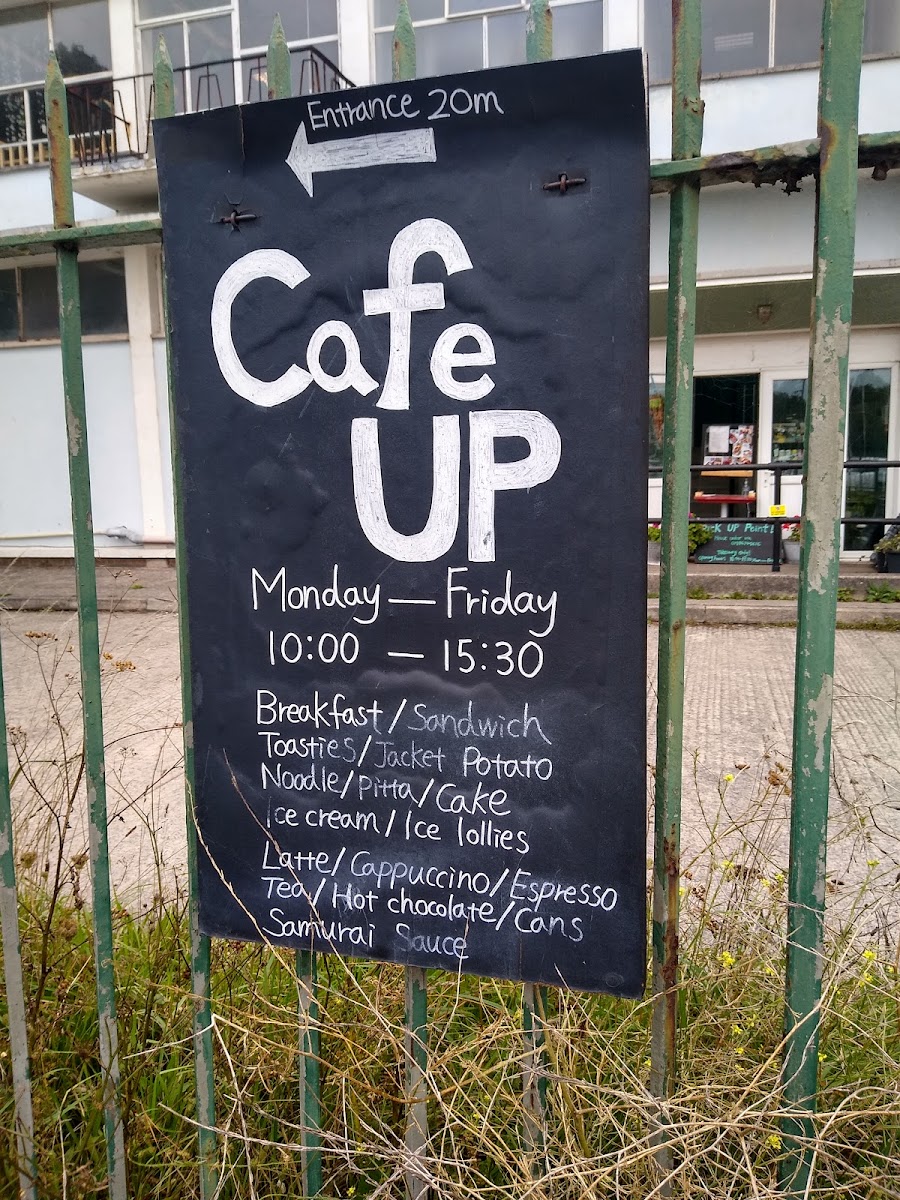 Entrance 20m
Cafe
UP
Monday — Friday
10:00 — 15:30
Breakfast / Sandwich
Toasties / Jacket Potato
Noodle / Pitta / Cake
Ice cream / Ice lollies
Latte / Cappuccino / Espresso
Tea / Hot chocolate / Cans
Samurai Sauce
Pick UP Point!